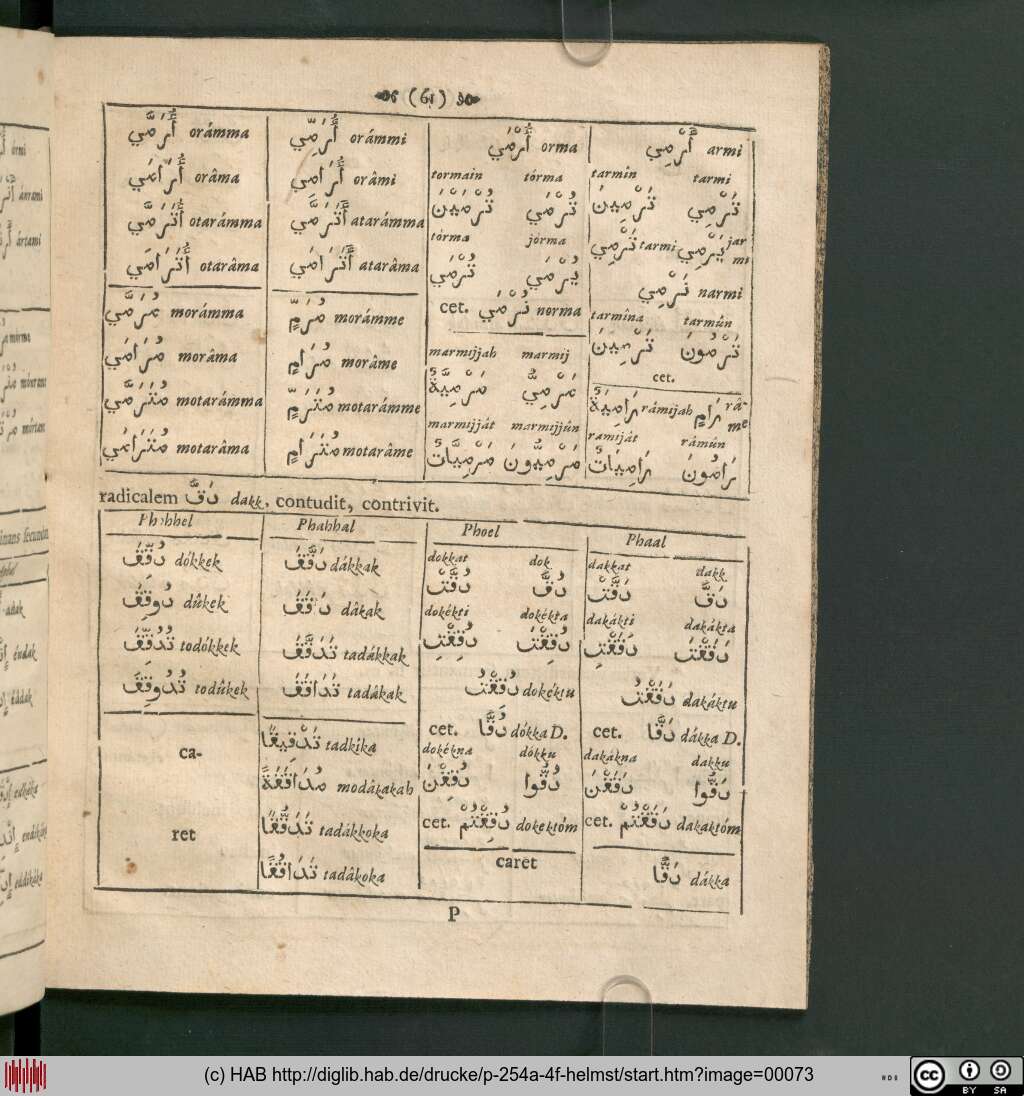 (61)
أُرَمَّي orámma أُرَمِّي orámmi أُرْمَي orma أَرْمِي armi
tormain tórma tarmin tarmi
أُرَامَي orâma أُرَامِي orâmi تُرْمَيْنَ تُرْمَي تَرْمِينَ تَرْمِي
tórma jórma
أُتَرَمَّي otarámma أَتَرَمَّي atarámma تَرْمِي tarmi يَرْمِي jarmi
أُتَرَامَي otarâma أَتَرَامَي atarâma تُرْمَي يُرْمَي نَرْمِي narmi
cet. نُرْمَي norma
tarmîna tarmûn
مُرَمَّي morámma مُرَمٍّ morámme تَرْمِينَ تَرْمُونَ
marmijjah marmij
cet.
مُرَامَي morâma مُرَامٍ morâme مَرْمِيَّةٌ مَرْمِيٌّ
مُتَرَمَّي motarámma مُتَرَمٍّ motarámme رَامِيَةٌ rámijah رَامٍ râme
marmijját marmijjún ramiját rámún
مُتَرَامَي motarâma مُتَرَامٍ motarâme مَرْمِيَّاتٌ مَرْمِيُّونَ رَامِيَاتٌ رَامُونَ
radicalem دَقَّ dakk, contudit, contrivit.
Phahhal Phoel Phaal
dokkat dok dakkat dakk
دُقِّقَ dókkek دَقَّقَ dákkak دُقَّتْ دُقَّ دَقَّتْ دَقَّ
dokékti dokékta dakákti dakákta
دُوقِقَ dûkek دَاقَقَ dâkak
تُدُقِّقَ todókkek تَدَقَّقَ tadákkak دُقِقْتِ دُقِقْتَ دَقَقْتِ دَقَقْتَ
تُدُوقِقَ todûkek تَدَاقَقَ tadâkak دُقِقْتُ dokéktu دَقَقْتُ dakáktu
cet. دُقَّا dókka D. cet. دَقَّا dákka D.
ca- تَدْقِيقًا tadkíka
dokékna dókku dakákna dakku
مُدَاقَقَةً modâkakah دُقِقْنَ دُقُّوا دَقَقْنَ دَقُّوا
ret تَدَقُّقًا tadákkoka cet. دُقِقْتُمْ dokektóm cet. دَقَقْتُمْ dakaktóm
caret
تَدَاقُقًا tadâkoka دَقًّا dákka
P
(c) HAB http://diglib.hab.de/drucke/p-254a-4f-helmst/start.htm?image=00073
cc BY SA